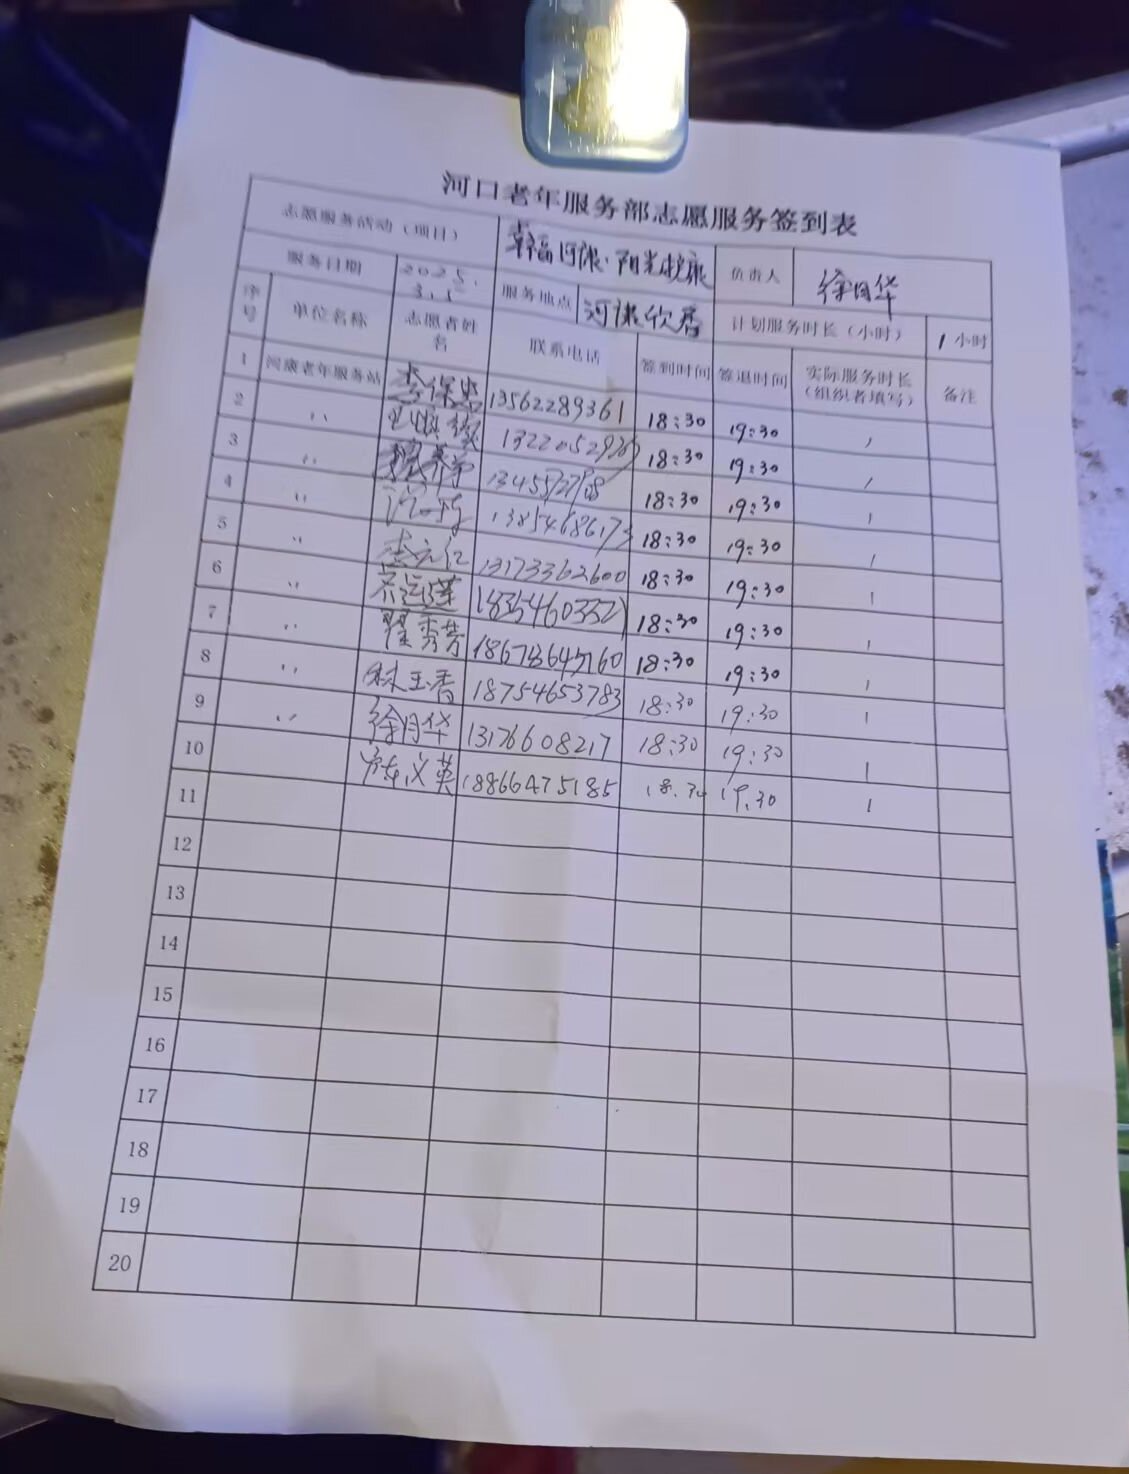 河口老年服务部志愿服务签到表
志愿服务活动（项目） 幸福河滨·阳光 负责人 徐月华
服务日期 2025.3.5 服务地点 河滨欣居 计划服务时长（小时） 1小时
序号 单位名称 志愿者姓名 联系电话 签到时间 签退时间 实际服务时长（组织者填写） 备注
1 河康老年服务站 李保忠 13562289361 18:30 19:30 1
2 〃 18:30 19:30 1
3 〃 18:30 19:30 1
4 〃 13854686173 18:30 19:30 1
5 〃 李元仁 13173362600 18:30 19:30 1
6 〃 18:30 19:30 1
7 〃 翟秀芳 18:30 19:30 1
8 〃 林玉香 18754653783 18:30 19:30 1
9 〃 徐月华 13176608217 18:30 19:30 1
10 义英 18866475185 18:30 19:30 1
11
12
13
14
15
16
17
18
19
20